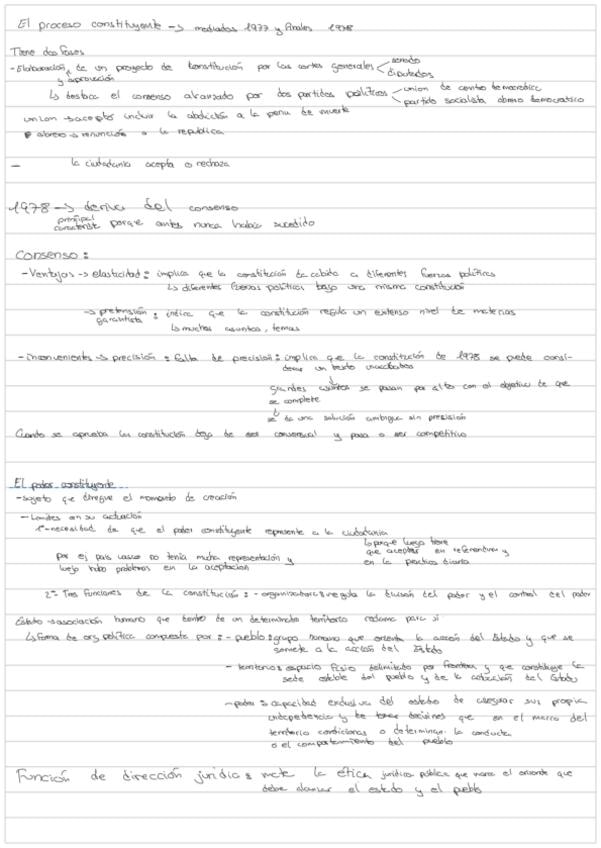 El proceso constituyente -> mediados 1977 y finales 1978
Tiene dos fases
- Elaboración de un proyecto de constitución por las cortes generales < senado
y aprovación diputados
↳ destaca el consenso alcanzado por dos partidos políticos < union de centro democratico
partido socialista obrero democratico
union -> acepto incluir la abolición a la pena de muerte
obrero -> renunción a la republica
- la ciudadania acepta o rechaza
1978 -> deriva del consenso
principal caracteristic porque antes nunca habia sucedido
Consenso:
- Ventajas -> elasticidad: implica que la constitución da cabida a diferentes fuerzas políticas
↳ diferentes fuerzas políticas bajo una misma constitución
-> pretensión garantista: indica que la constitución regula un extenso nivel de materias
↳ muchos asuntos, temas
- inconvenientes -> precisión: falta de precisión: implica que la constitución de 1978 se puede consi-
derar un texto inacabados
grandes asuntos se pasan por alto con el objetivo de que
se complete
se da una solución ambigua sin presisión
Cuando se aprueba la constitución deja de ser consensual y pasa a ser competitivo
El poder constituyente
- sujeto que diregue el momento de creación
- Limites en su actuación
1º necesidad de que el poder constituyente represente a la ciudadania
↳ porque luego tiene
que aceptar en referendum y
en la practica diaria
por ej pais vasco no tenía mucha representación y
luego hubo problemas en la aceptacion
2º Tres funciones de la constitución: - organizatoria: regula la división del poder y el control del poder
Estado -> asociación humano que dentro de un determinado territorio reclama para si
↳ forma de org política compuesta por: - pueblo: grupo humano que orienta la acción del Estado y que se
somete a la acción del Estado
- territorio: espacio físio delimitado por fronteras y que constituye la
sede estable del pueblo y de la actuación del Estado
- poder: capacidad exclusiva del estado de asegurar sus propia
independencia y de tomar decisines que en el marco del
territorio condicionan o determinan la conducta
o el comportamiento del pueblo
Función de dirección juridica: mete la ética juridica pública que marca el orizonte que
debe alcanzar el estado y el pueblo